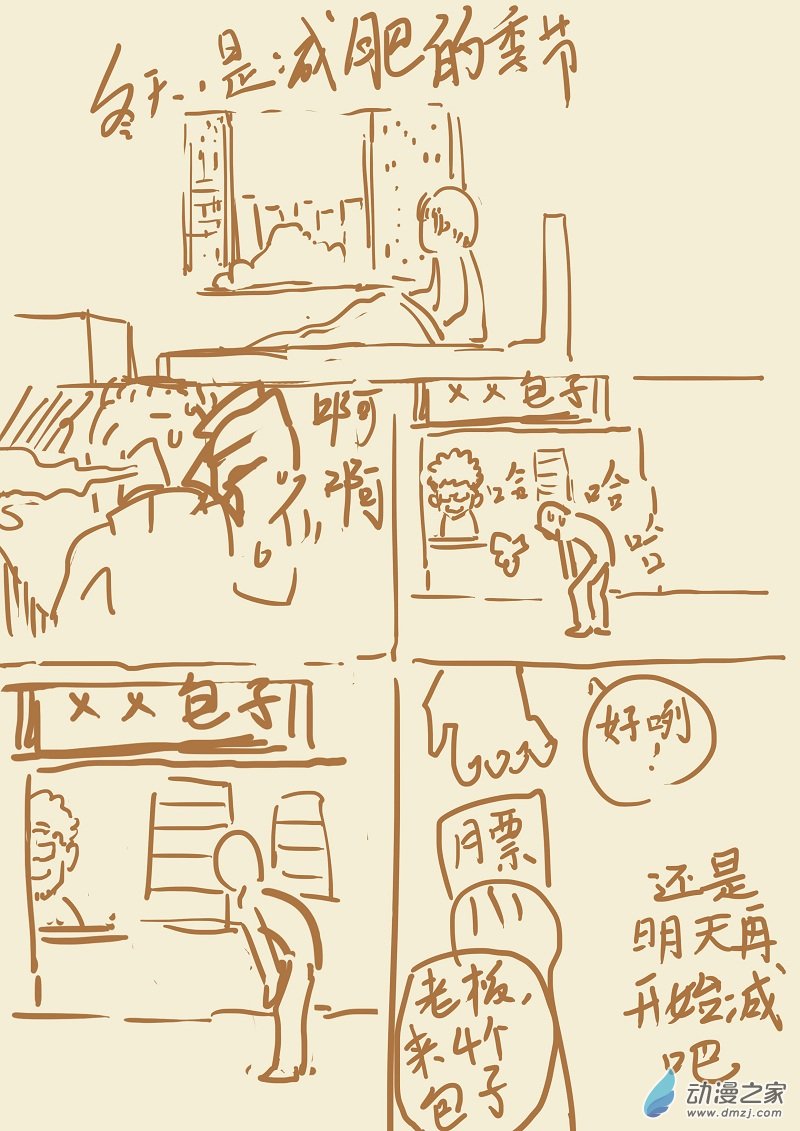 冬天,是减肥的季节
啊
啊
××包子
哈
哈
哈
××包子
好咧!
月票
老板,
来4个
包子
还是
明天再
开始减
吧
动漫之家
www.dmzj.com